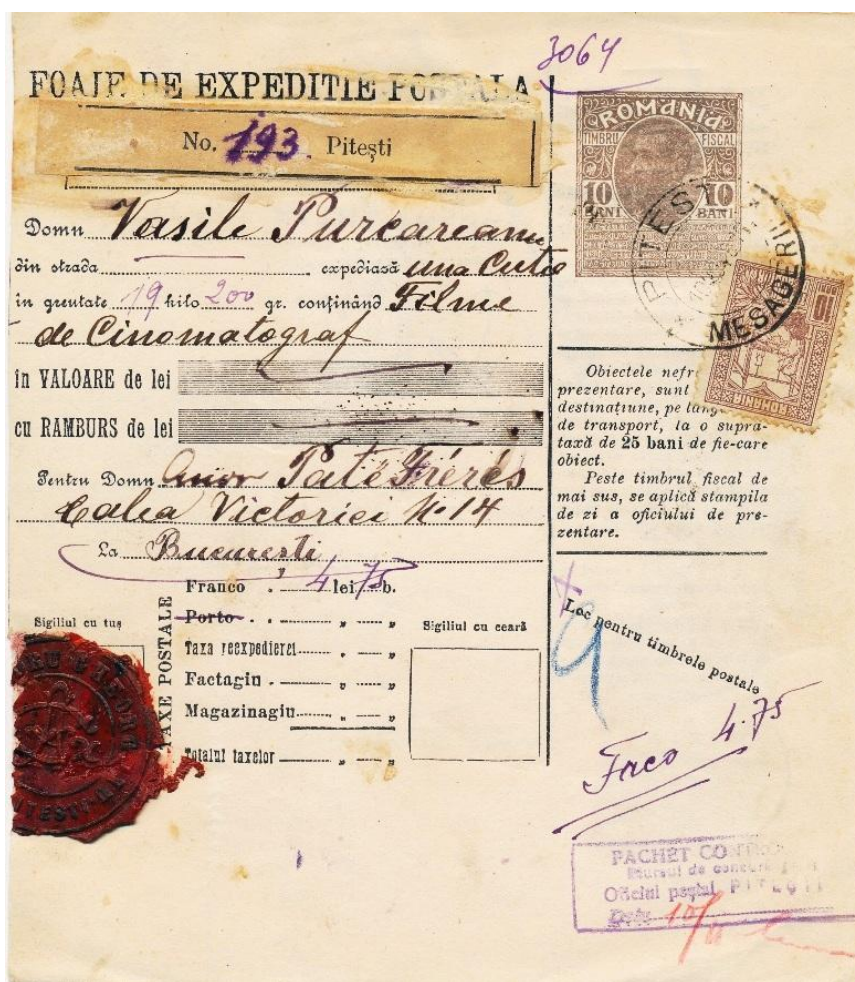 3064
FOAIE DE EXPEDITIE POSTALA
No. 193. Pitești
Domn Vasile Purcareanu
din strada expediază una Cutie
în greutate 19 kilo 200 gr. conținând Filme
de Cinomatograf
în VALOARE de lei
cu RAMBURS de lei
Pentru Domn Pate Fréres
Calea Victoriei N. 14
La București
TAXE POSTALE
Franco . 4 lei 75 b.
Porto . „ „
Taxa reexpedierei . „ „
Factagiu . „ „
Magazinagiu . „ „
Totalul taxelor „ „
Sigiliul cu tuș
Sigiliul cu ceară
ROMANIA
TIMBRU FISCAL
10 BANI 10 BANI
PITEST
MESAGERII
10
ROMANIA
Obiectele nefr
prezentare, sunt
destinațiune, pe lang
de transport, la o supra-
taxă de 25 bani de fie-care
obiect.
Peste timbrul fiscal de
mai sus, se aplică stampila
de zi a oficiului de pre-
zentare.
Loc pentru timbrele postale
Frco 4.75
PACHET CONT
Oficiul poștal PITEȘTI
Data 10/11